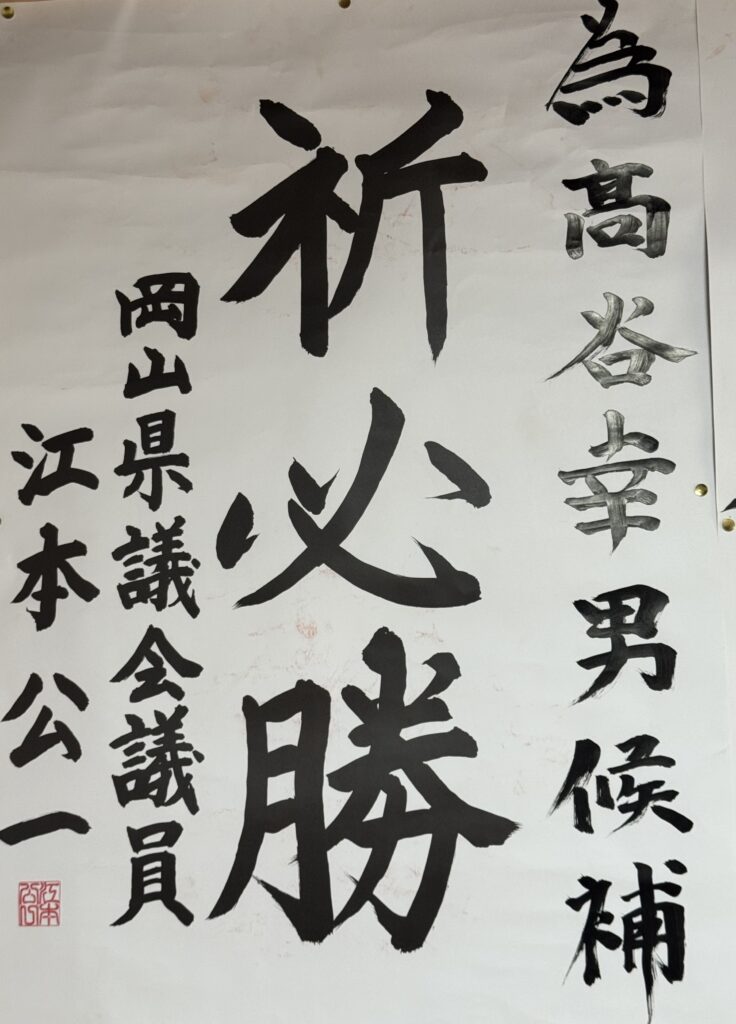 為髙谷幸男候補
祈必勝
岡山県議会議員
江本公一